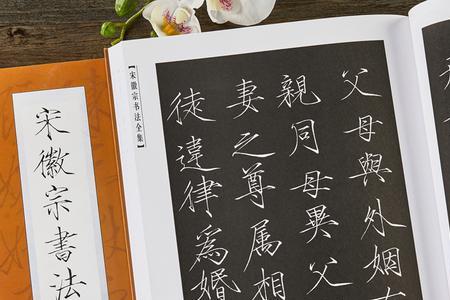 宋徽宗书法
【宋徽宗书法全集】
父母與外姻
親同母異父
妻之尊属相
徒違律為婚